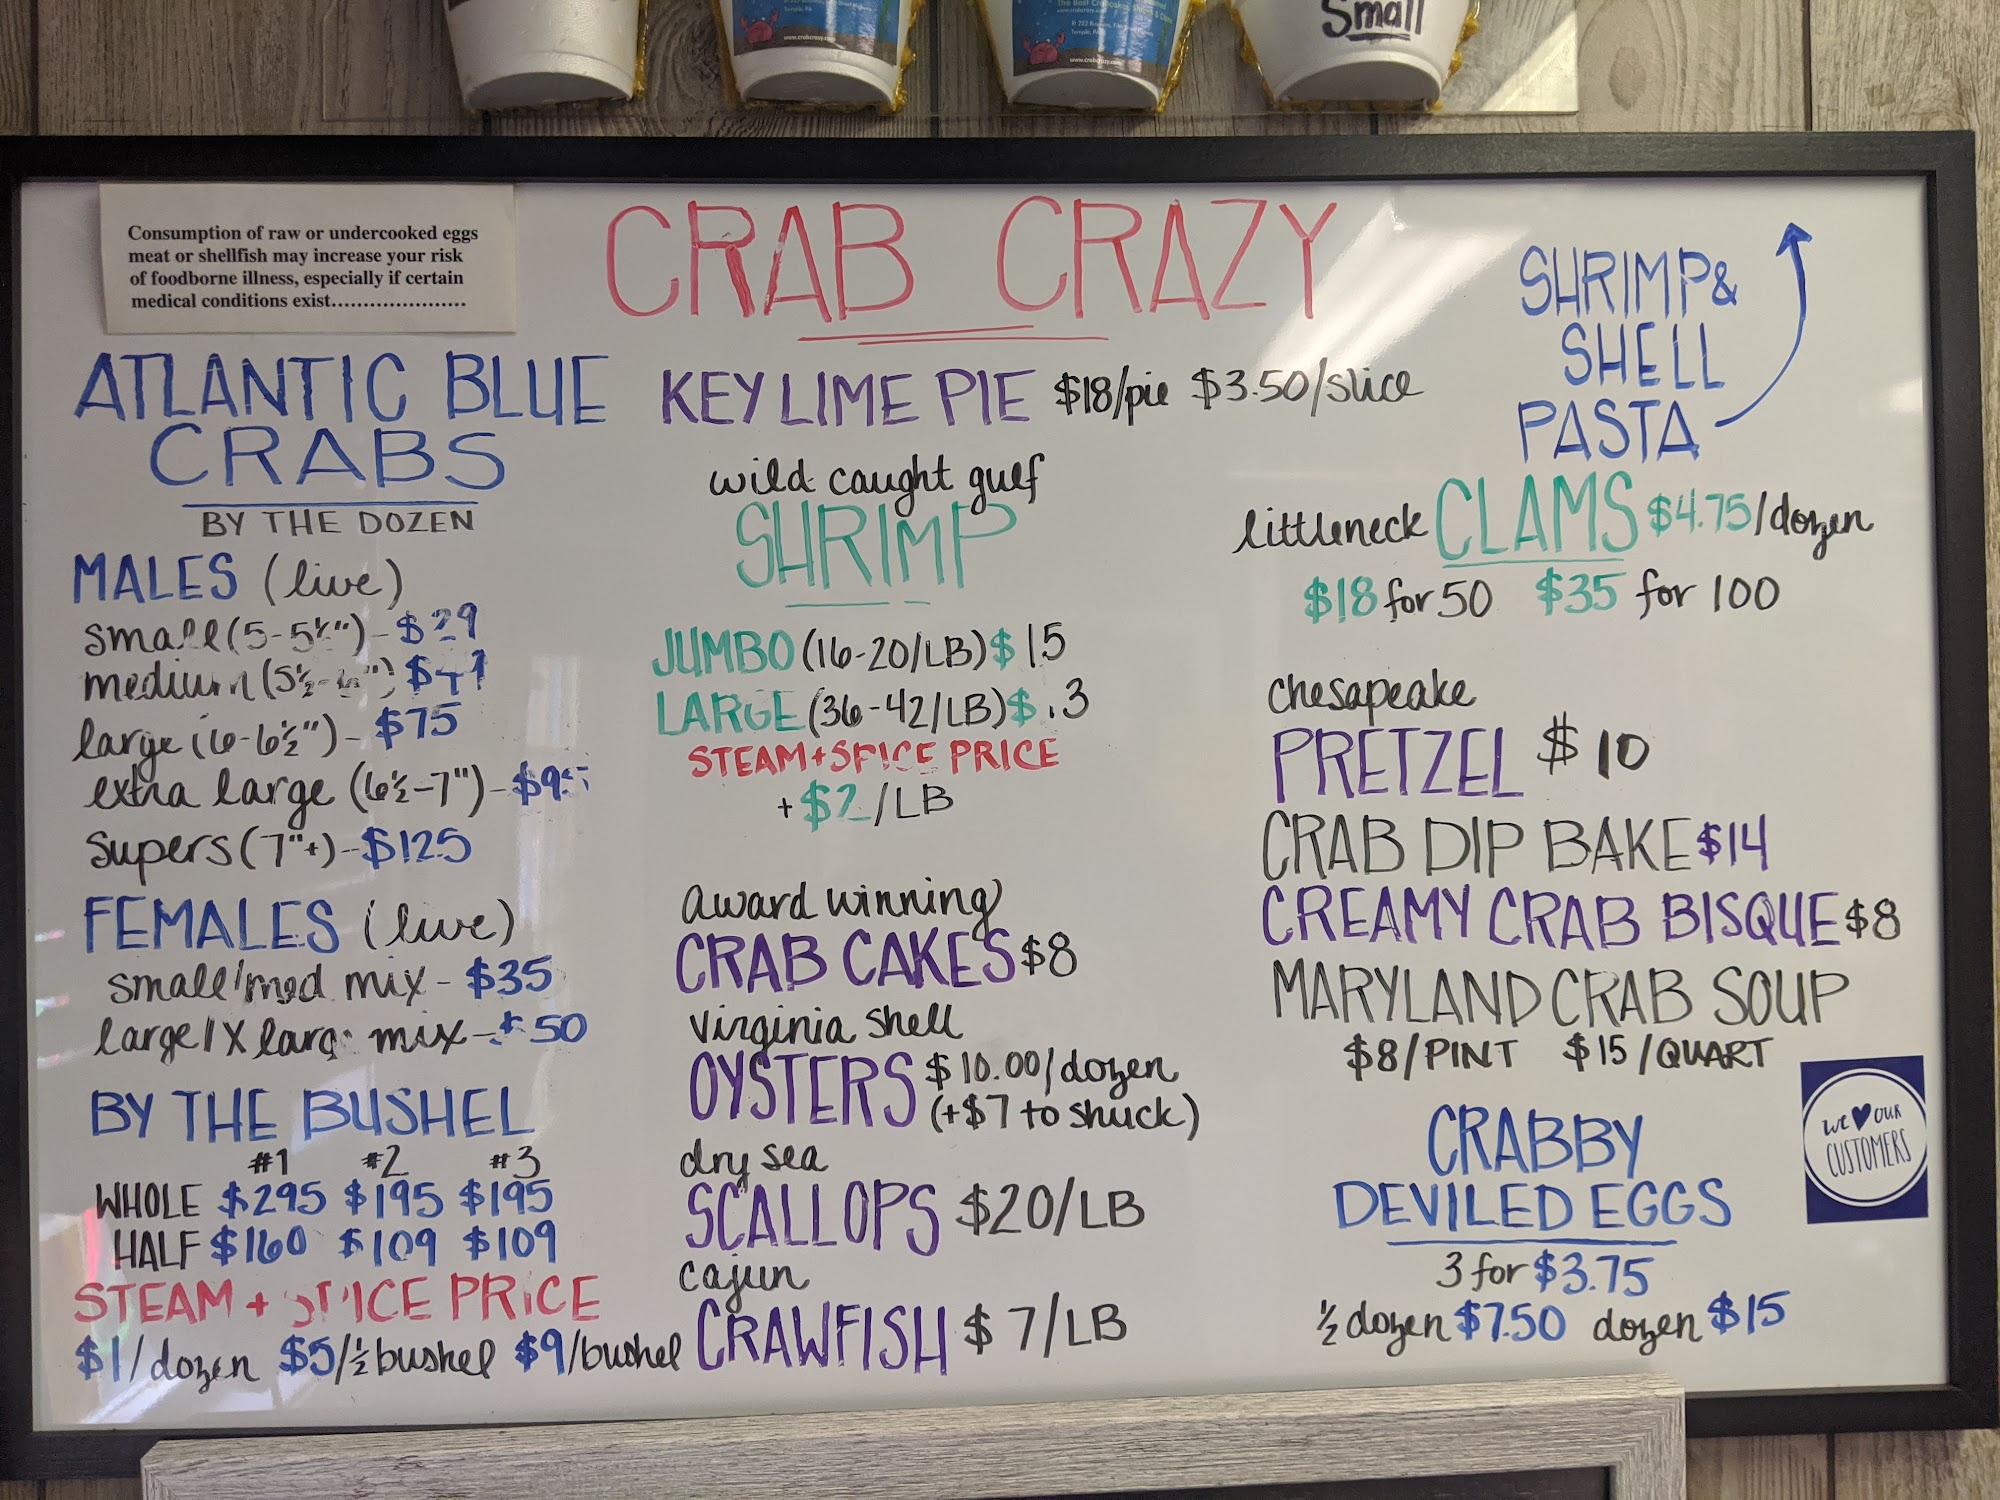 Small
www.crabcrazy.com
www.crabcrazy.com
Consumption of raw or undercooked eggs
meat or shellfish may increase your risk
of foodborne illness, especially if certain
medical conditions exist.....................
CRAB CRAZY
ATLANTIC BLUE
CRABS
BY THE DOZEN
MALES (live)
small (5-5½") - $29
medium
large (6-6½") - $75
extra large (6½-7") -
Supers (7"+) - $125
FEMALES (live)
small/med mix - $35
large/X large mix - $50
BY THE BUSHEL
#1 #2 #3
WHOLE $295 $195 $195
HALF $160 $109 $109
STEAM + SPICE PRICE
$1/dozen $5/½ bushel $9/bushel
KEY LIME PIE $18/pie $3.50/slice
wild caught gulf
SHRIMP
JUMBO (16-20/LB) $15
LARGE (36-42/LB)
STEAM + SPICE PRICE
+ $2/LB
award winning
CRAB CAKES $8
virginia shell
OYSTERS $10.00/dozen
(+$7 to shuck)
dry sea
SCALLOPS $20/LB
cajun
CRAWFISH $7/LB
SHRIMP &
SHELL
PASTA
littleneck CLAMS $4.75/dozen
$18 for 50 $35 for 100
chesapeake
PRETZEL $10
CRAB DIP BAKE $14
CREAMY CRAB BISQUE $8
MARYLAND CRAB SOUP
$8/PINT $15/QUART
WE ♥ OUR
CUSTOMERS
CRABBY
DEVILED EGGS
3 for $3.75
½ dozen $7.50 dozen $15